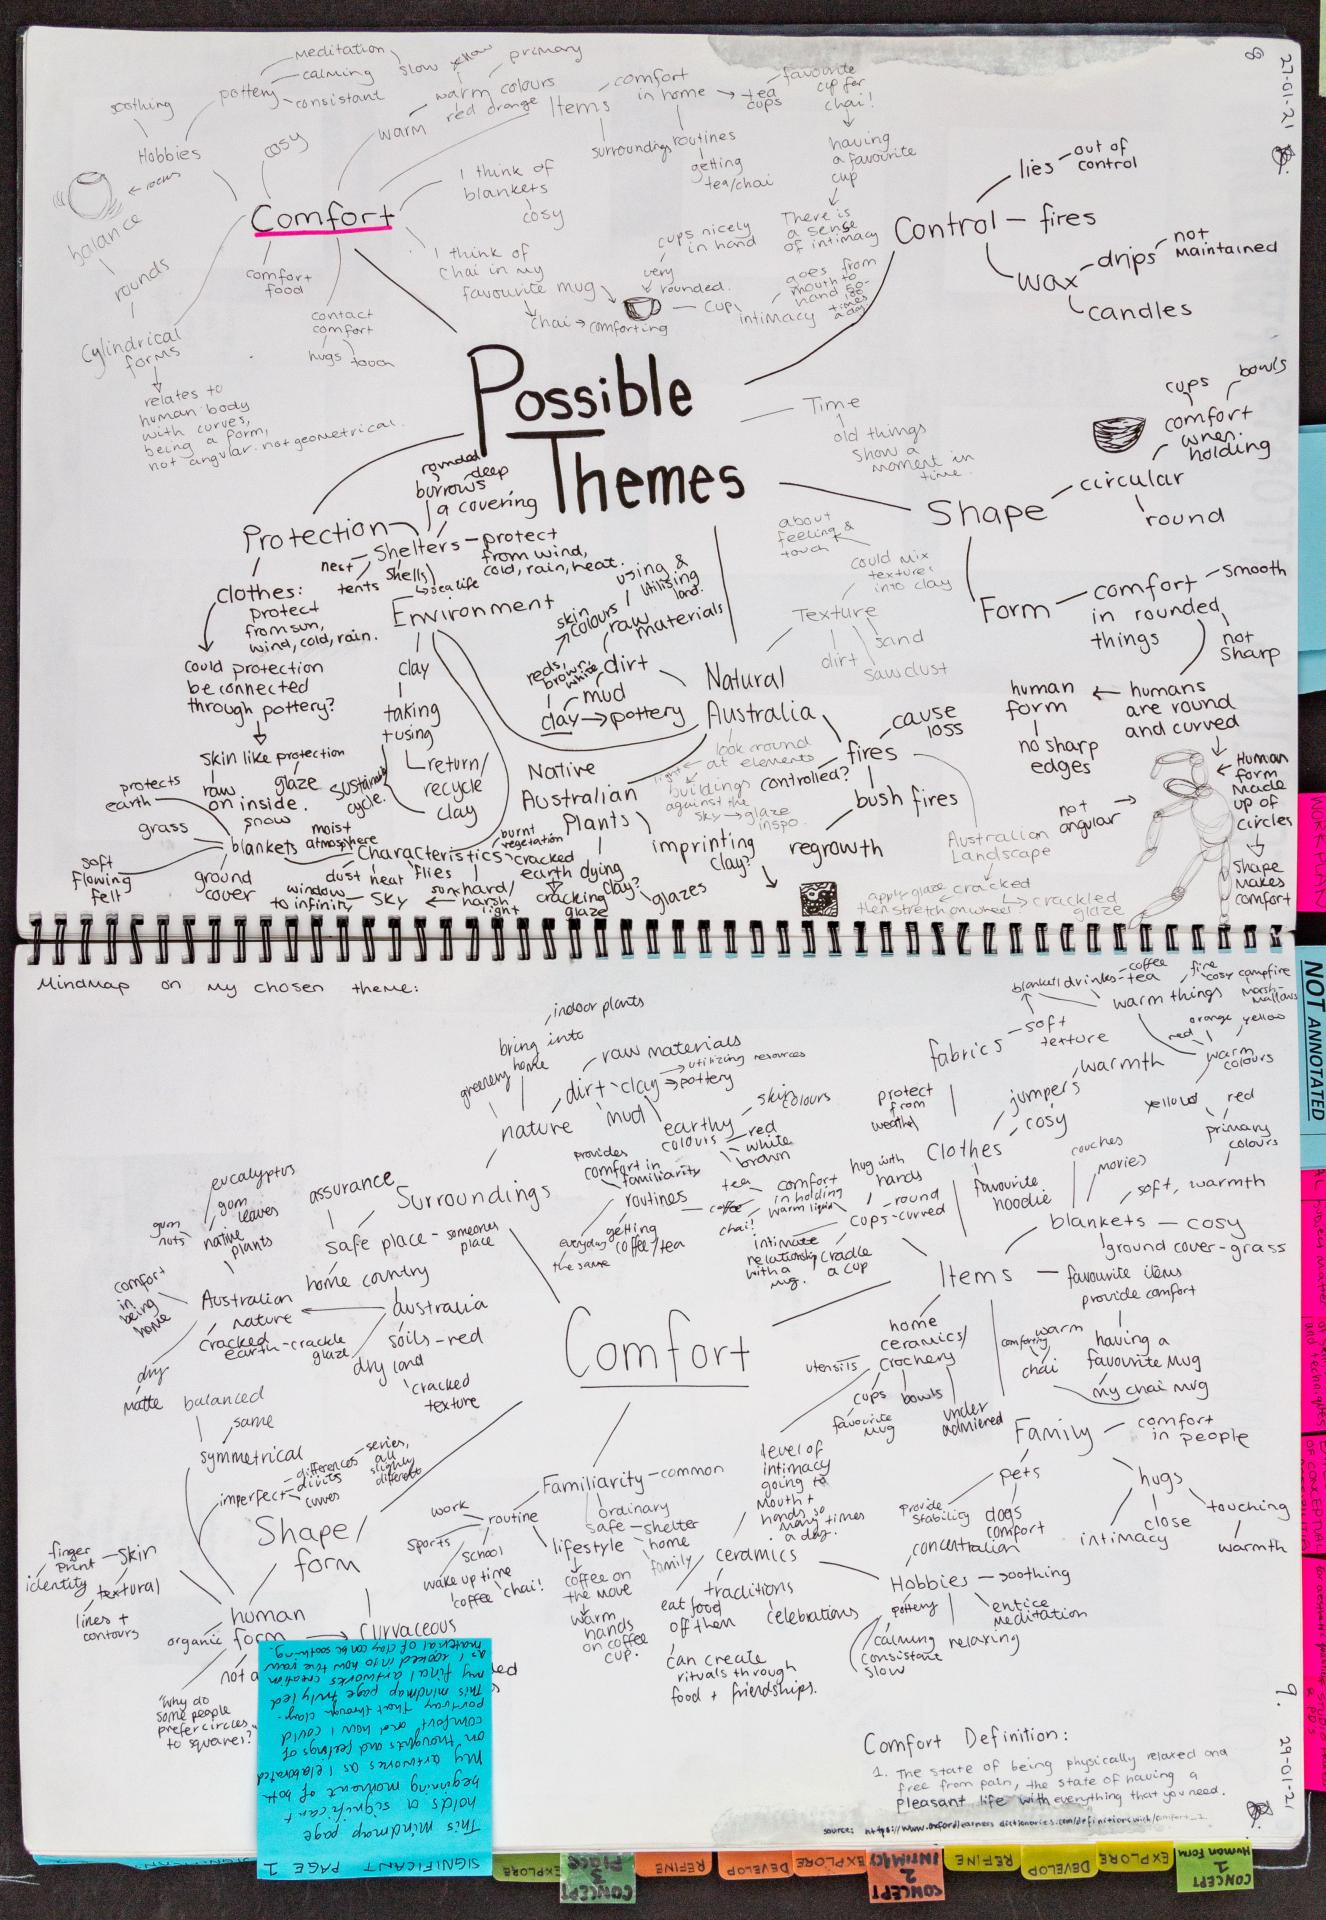 27-01-21
8
meditation
calming
consistant
pottery
slow
yellow
primary
warm colours
red orange
warm
soothing
Hobbies
cosy
focus
balance
rounds
Cylindrical
forms
relates to
human body
with curves,
being a form,
not angular. not geometrical.
Comfort
comfort
food
contact
comfort
hugs
touch
I think of
blankets
cosy
I think of
chai in my
favourite mug
chai → comforting
Items
comfort
in home
tea
cups
favourite
cup for
chai!
surroundings
routines
getting
tea/chai
having
a favourite
cup
There is
a sense
of intimacy
cups nicely
in hand
very
rounded.
cup
intimacy
goes from
mouth to
hand 50-
100
times
a day
Control
lies
out of
control
fires
wax
drips
not
maintained
candles
Possible
Themes
Time
old things
show a
moment in
time.
Shape
circular
round
comfort
when
holding
cups
bowls
Form
comfort
in rounded
things
smooth
not
sharp
humans
are round
and curved
human
form
no sharp
edges
not
angular
Human
form
made
up of
circles
Shape
makes
comfort
Protection
Shelters
rounded
deep
burrows
a covering
protect
from wind,
cold, rain, heat.
nest
tents
shells
sea life
clothes:
protect
from sun,
wind, cold, rain.
could protection
be connected
through pottery?
skin like protection
raw
on inside.
glaze
Environment
clay
taking
+using
return/
recycle
clay
sustainable
cycle.
Characteristics
blankets
protects
earth
grass
soft
flowing
felt
ground
cover
snow
moist
atmosphere
dust
heat
flies
sky
window
to infinity
sun
hard/
harsh
light
burnt
vegetation
cracked
earth
cracking
glaze
Natural
Australia
dirt
mud
clay → pottery
reds,
brown,
white
skin
colours
raw
materials
using &
utilising
land.
Texture
could mix
textures
into clay
about
feeling &
touch
dirt
sand
sawdust
Native
Australian
Plants
dying
clay?
glazes
imprinting
clay?
look round
at elements
light
buildings
against the
sky → glaze
inspo.
fires
cause
loss
controlled?
bush fires
regrowth
Australian
Landscape
cracked
crackled
glaze
apply glaze
then stretch on wheel
WORK PLAN
Mindmap on my chosen theme:
NOT ANNOTATED
Comfort
Surroundings
nature
greenery
bring into
home
indoor plants
dirt
clay
mud
raw materials
utilizing resources
pottery
earthy
colours
skin
colours
red
white
brown
assurance
safe place
someones
place
home country
australia
soils - red
dry land
cracked
texture
Australian
nature
native
plants
gum
leaves
eucalyptus
gum
nuts
comfort
in
being
home
cracked
earth - crackle
glaze
dry
matte
routines
provides
comfort in
familiarity
everyday
the same
getting
coffee/tea
tea
coffee
chai!
comfort
in holding
warm liquid
hug with
hands
cups - curved
round
intimate
relationship
with a
mug.
cradle
a cup
Items
Clothes
protect
from
weather
jumpers
warmth
cosy
favourite
hoodie
fabrics
soft
texture
blankets
drinks
coffee
tea
warm things
fire
cosy campfire
marsh-
mallows
warm
colours
red
orange
yellow
primary
colours
yellow
red
blankets — cosy
couches
movies
soft, warmth
ground cover - grass
favourite items
provide comfort
having a
favourite mug
my chai mug
warm
comforting
chai
home
ceramics/
crockery
utensils
cups
favourite
mug
bowls
under
admiered
level of
intimacy
going to
mouth +
hands so
many times
a day.
ceramics
traditions
eat food
off them
celebrations
can create
rituals through
food + friendships.
Family
comfort
in people
pets
provide
stability
dogs
comfort
hugs
intimacy
close
touching
warmth
Hobbies — soothing
concentration
pottery
entice
meditation
relaxing
calming
consistant
slow
Familiarity — common
ordinary
safe — shelter
home
family
routine
work
sports
school
wake up time
coffee
chai!
lifestyle
coffee on
the move
warm
hands
on coffee
cup.
Shape/
form
symmetrical
balanced
same
imperfect
differences
divits
curves
series,
all
slightly
different
human
form
curvaceous
organic
skin
textural
finger
print
identity
lines +
contours
"Why do
some people
prefer circles
to squares?"
SIGNIFICANT PAGE 1
This mindmap page
holds a significant
beginning moment of both
my artworks as I elaborated
on thoughts and feelings of
comfort and how I could
portray that through clay.
This mindmap page truly led
my final artworks creation
as I looked into how the raw
material of clay can be soothing.
Comfort Definition:
1. The state of being physically relaxed and
free from pain, the state of having a
pleasant life with everything that you need.
9.
29-01-21
EXPLORE
CONCEPT
3
PLACE
REFINE
DEVELOP
EXPLORE
CONCEPT
2
INTIMACY
REFINE
DEVELOP
EXPLORE
CONCEPT
1
Human Form